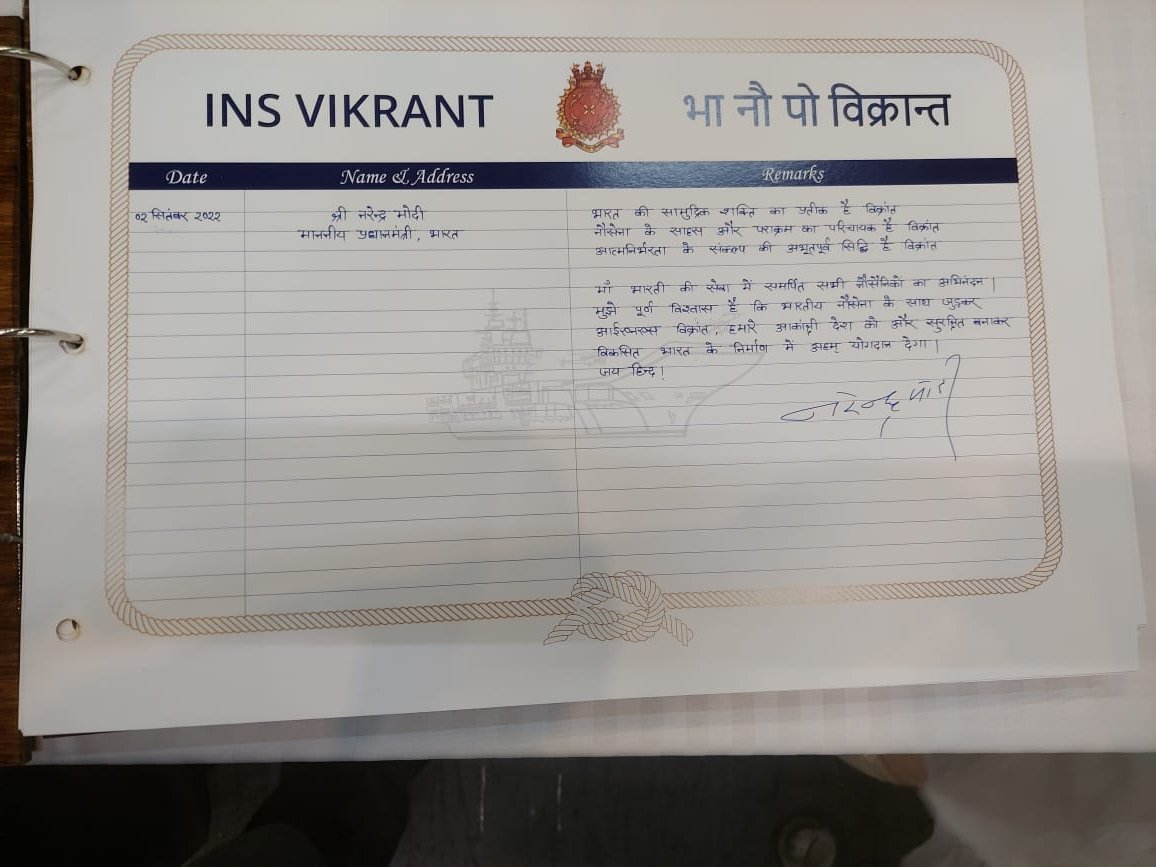 INS VIKRANT
भा नौ पो विक्रान्त
Date
Name & Address
Remarks
०२ सितंबर २०२२
श्री नरेन्द्र मोदी
माननीय प्रधानमंत्री, भारत
भारत की सामुद्रिक शक्ति का प्रतीक है विक्रांत
नौसेना के साहस और पराक्रम का परिचायक है विक्रांत
आत्मनिर्भरता के संकल्प की अभूतपूर्व सिद्धि है विक्रांत
माँ भारती की सेवा में समर्पित सभी नौसैनिकों का अभिनंदन।
मुझे पूर्ण विश्वास है कि भारतीय नौसेना के साथ जुड़कर
आईएनएस विक्रांत, हमारे आकांक्षी देश को और सुरक्षित बनाकर
विकसित भारत के निर्माण में अहम् योगदान देगा।
जय हिन्द!
नरेन्द्र मोदी